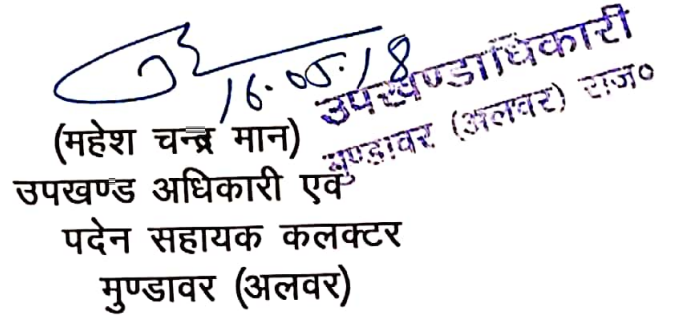 16.05.18
उपखण्डाधिकारी
मुण्डावर (अलवर) राज०
(महेश चन्द्र मान)
उपखण्ड अधिकारी एवं
पदेन सहायक कलक्टर
मुण्डावर (अलवर)